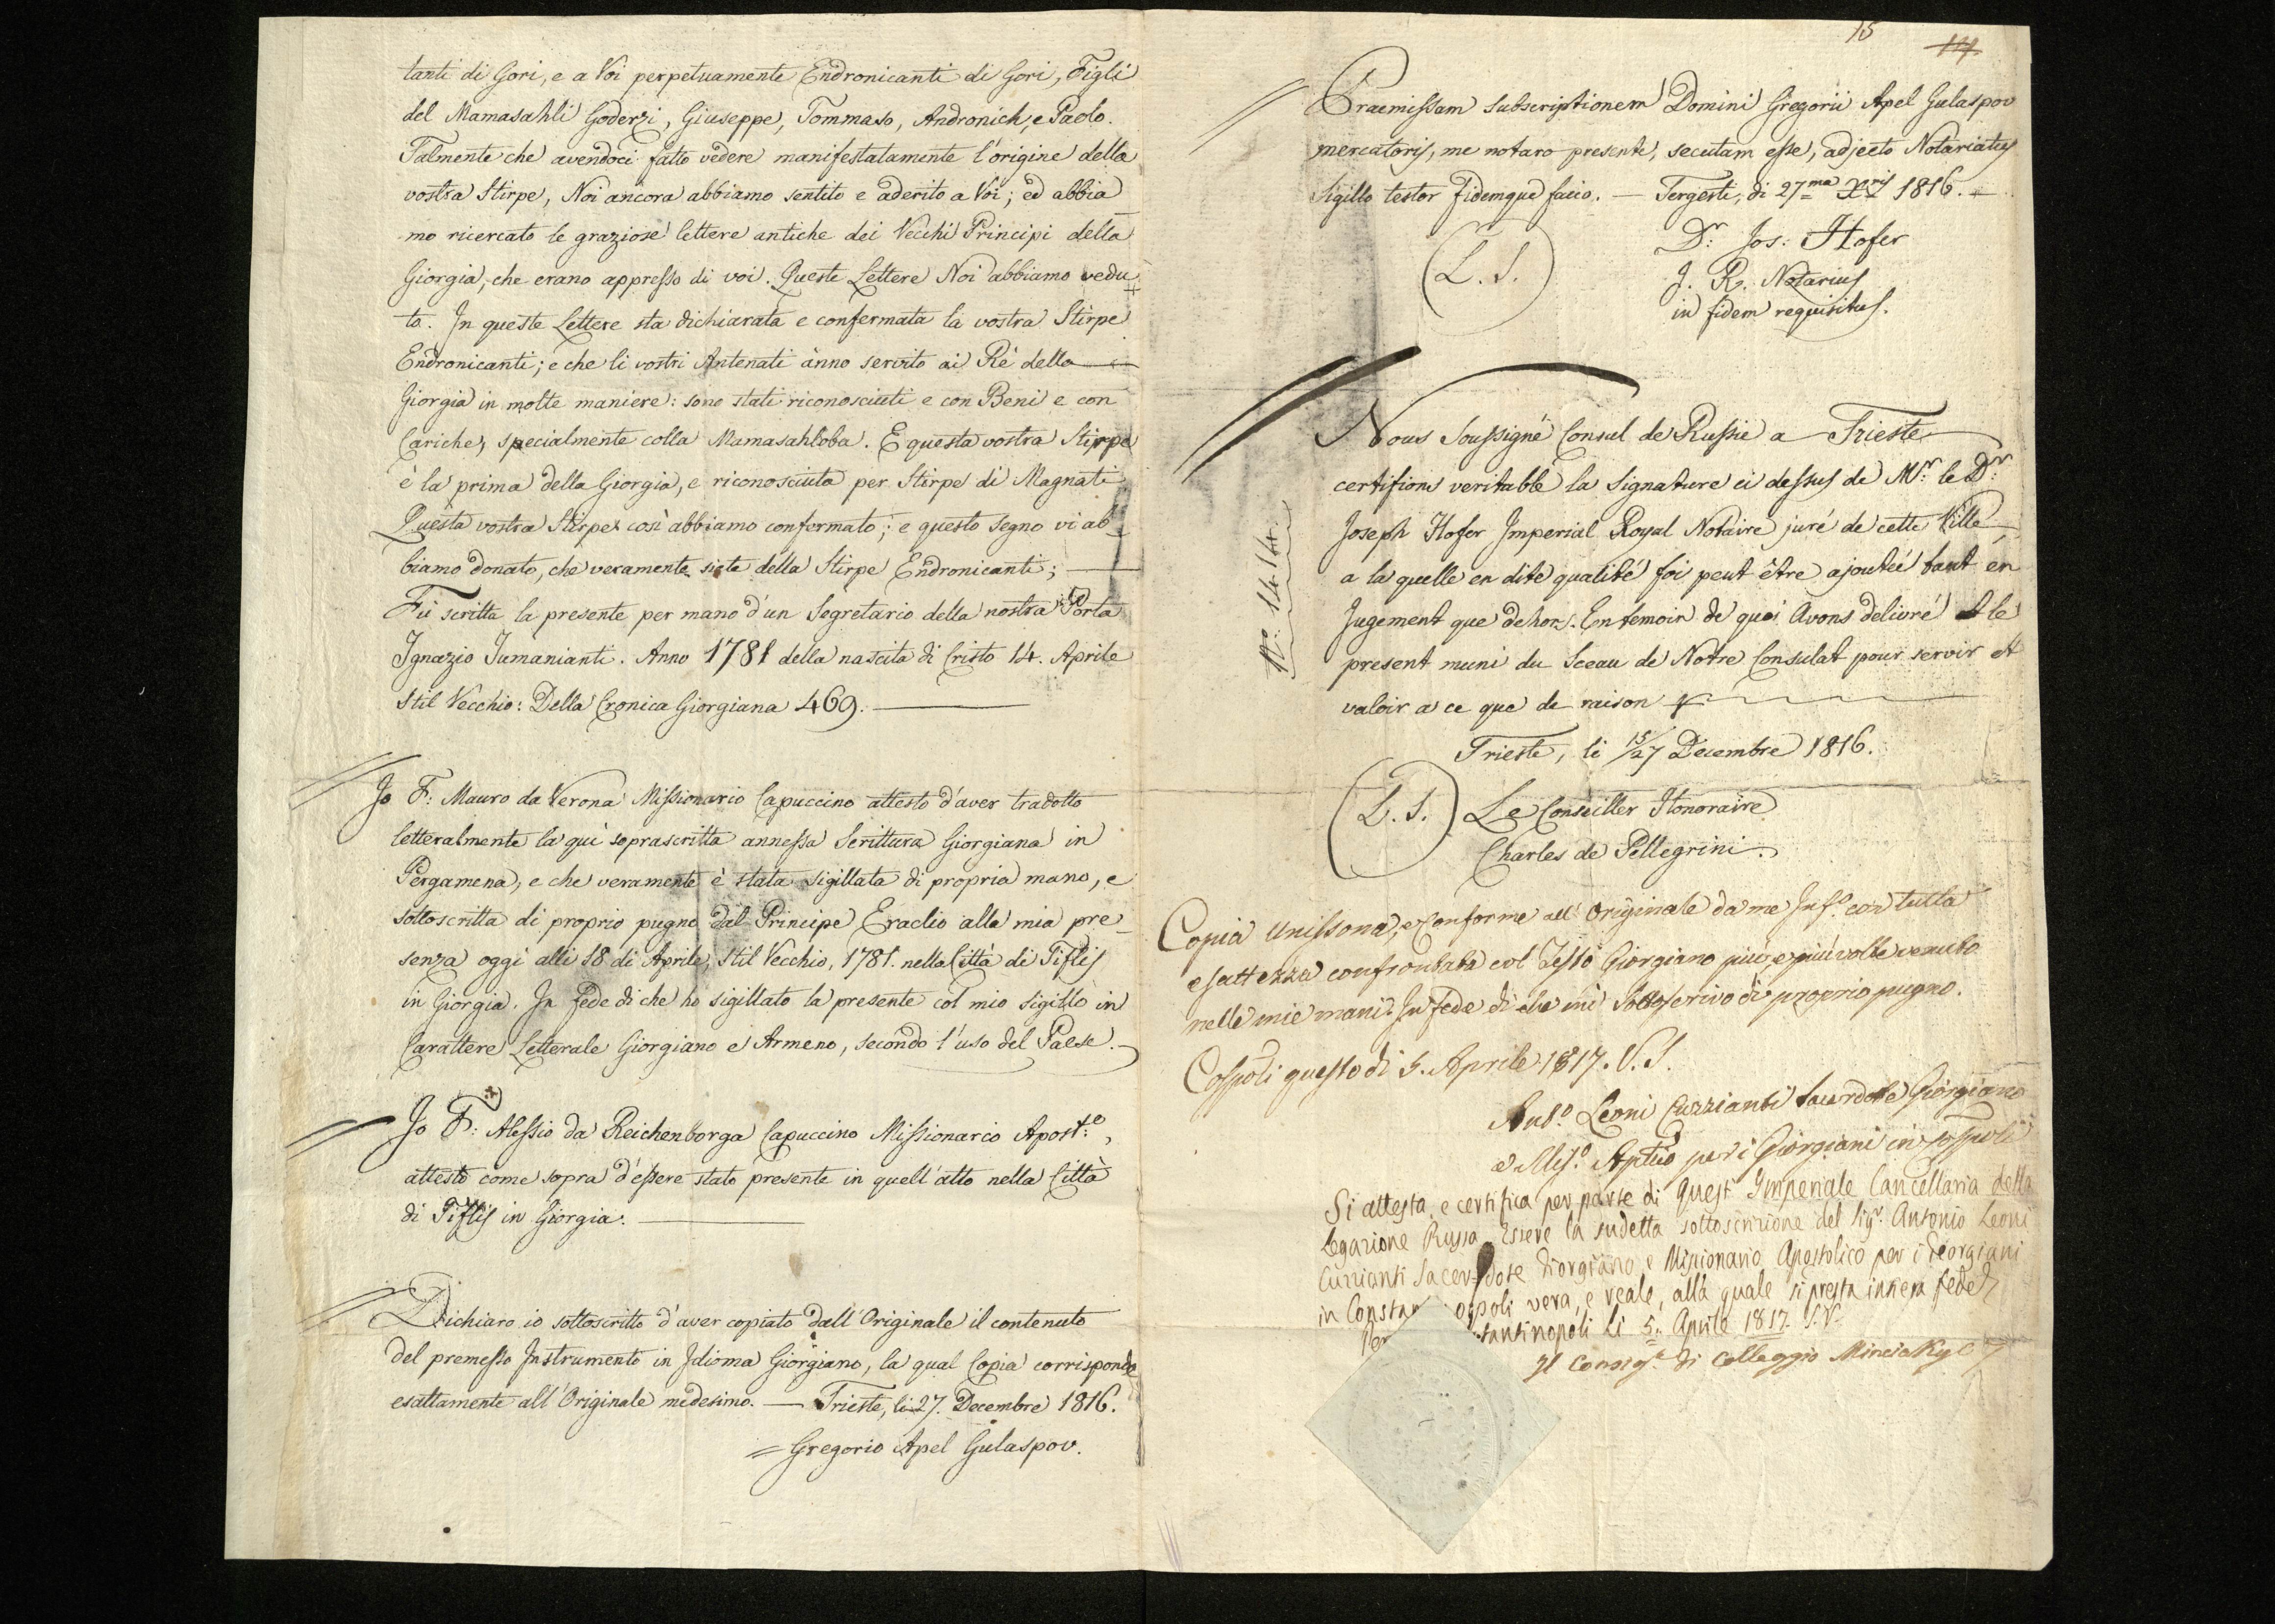 tanti di Gori, e a Voi perpetuamente Endronicanti di Gori, Figli
del Mamasahli Goderzi, Giuseppe, Tommaso, Andronich, e Paolo.
Talmente che avendoci fatto vedere manifestatamente l'origine della
vostra Stirpe, Noi ancora abbiamo sentito e aderito a Voi; ed abbia
mo ricercato le graziose lettere antiche dei Vecchi Principi della
Giorgia, che erano appresso di voi. Queste Lettere Noi abbiamo vedu
to. In queste Lettere sta dichiarata e confermata la vostra Stirpe
Endronicanti; e che li vostri Antenati ànno servito ai Rè della
Giorgia in molte maniere: sono stati riconosciuti e con Beni e con
Cariche, specialmente colla Mamasahloba. E questa vostra Stirpe
è la prima della Giorgia, e riconosciuta per Stirpe di Magnati
Questa vostra Stirpe così abbiamo confermato; e questo segno vi ab-
biamo donato, che veramente siete della Stirpe Endronicanti;
Fù scritta la presente per mano d'un Segretario della nostra Porta
Ignazio Tumanianti. Anno 1781 della nascita di Cristo 14. Aprile
Stil Vecchio: Della Cronica Giorgiana 469.
Jo F: Mauro da Verona Missionario Capuccino attesto d'aver tradotto
letteralmente la quì soprascritta annessa Scrittura Giorgiana in
Pergamena, e che veramente è stata sigillata di propria mano, e
sottoscritta di proprio pugno dal Principe Eraclio alla mia pre-
senza oggi alli 18 di Aprile, Stil Vecchio, 1781. nella Città di Tiflis
in Giorgia. In fede di che ho sigillato la presente col mio sigillo in
Carattere Letterale Giorgiano e Armeno, secondo l'uso del Paese.
Jo F: Alessio da Reichenborga Capuccino Missionario Apost:o,
attesto come sopra d'essere stato presente in quell'atto nella Città
di Tiflis in Giorgia.
Dichiaro io sottoscritto d'aver copiato dall'Originale il contenuto
del premesso Instrumento in Idioma Giorgiano, la qual Copia corrisponde
esattamente all'Originale medesimo. — Trieste, li 27. Decembre 1816.
Gregorio Apel Gulaspov.
15
Praemissam subscriptionem Domini Gregorii Apel Gulaspov
mercatoris, me notaro presente, secutam esse, adjecto Notariatus
Sigillo testor fidemque facio. — Tergeste, di 27ma Xris 1816.
Dr: Jos: Hofer
(L. S.)
J. R. Notarius
in fidem requisitus.
Nous Soussigné Consul de Russie a Trieste
certifions veritable la Signature ci dessus de Mr: le Dr:
Joseph Hofer Imperial Royal Notaire juré de cette Ville
a la quelle en dite qualité foi peut être ajoutée tant en
Jugement que dehors. En temoin de quoi Avons delivré le
present muni du Sceau de Notre Consulat pour servir et
valoir a ce que de raison
No: 1414.
Trieste, li 15/27 Decembre 1816.
(L. S.) Le Conseiller Honoraire
Charles de Pellegrini.
Copia Unissona, e Conforme all'Originale da me Inf.o con tutta
esattezza confrontata col Testo Giorgiano più, e più volte venuto
nelle mie mani. In fede di che mi Sottoscrivo di proprio pugno.
Cospoli questo dì 5. Aprile 1817. V.S.
Ant.o Leoni Cuzzianti Sacerdote Giorgiano
e Mis.o Aptico per i Giorgiani in Cospoli
Si attesta, e certifica per parte di Quest' Imperiale Cancellaria della
Legazione Russa Essere la sudetta sottoscrizione del Sigr. Antonio Leoni
Cuzzianti Sacerdote Giorgiano e Missionario Apostolico per i Georgiani
in Constan opoli vera, e reale, alla quale si presta intera fede
Per tantinopoli li 5. Aprile 1817. S.V.
Il Consigr. di Colleggio Minciaky